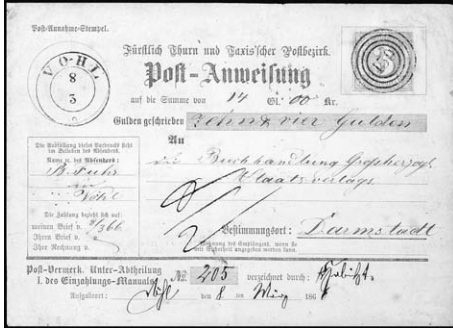 Post-Annahme-Stempel.
VOHL
8
3
Fürstlich Thurn und Taxis'scher Postbezirk.
Post-Anweisung
auf die Summe von 14 Gl. 00 Kr.
Gulden geschrieben Zehn & vier Gulden
An
die Buchhandlung Großherzogl.
Staatsverlags
Bestimmungsort: Darmstadt
Die Ausfüllung dieses Vordrucks steht
im Belieben des Absenders.
Name des Absenders:
Vöhl
Die Zahlung bezieht sich auf:
meinen Brief v.
Ihren Brief v.
Ihre Rechnung v.
Post-Vermerk. Unter-Abtheilung
I. des Einzahlungs-Manuals № 205 verzeichnet durch:
Aufgabeort: Vöhl den 8 März 186